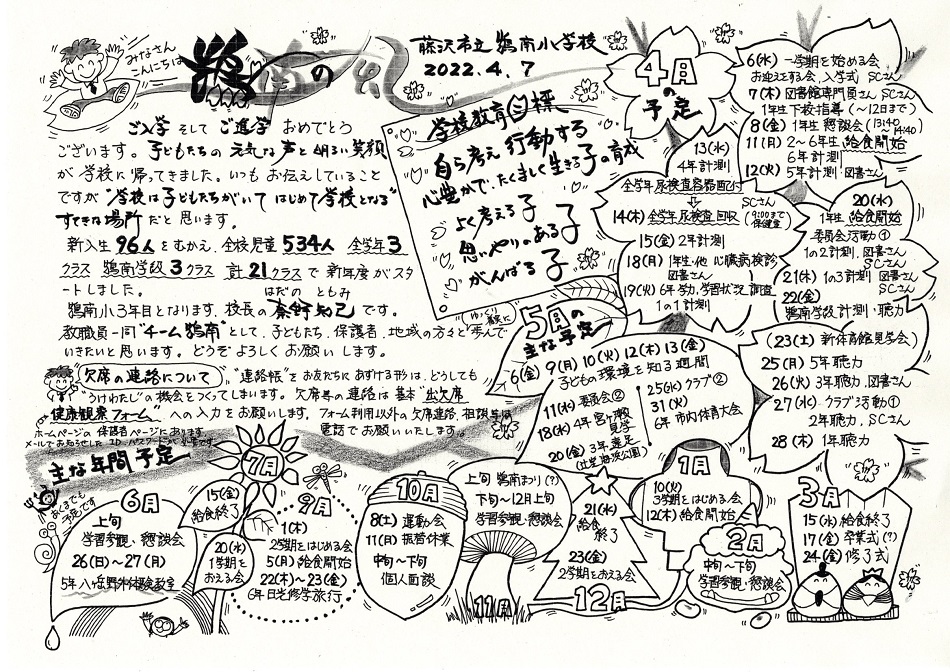 みなさん
こんにちは
鵠南の風
藤沢市立 鵠南小学校
2022.4.7
ご入学 そして ご進学 おめでとう
ございます。子どもたちの 元気な声と 明るい笑顔
が 学校に 帰ってきました。いつも お伝えしていること
ですが "学校は 子どもたちがいて はじめて学校となる"
すてきな場所 だと 思います。
新入生 96人をむかえ、全校児童 534人 全学年3
クラス 鵠南学級 3クラス 計21クラスで 新年度がスタ
ートしました。
鵠南小3年目となります、校長の 秦野知己 です。
はだの ともみ
教職員一同 "チーム鵠南"として、子どもたち、保護者、地域の方々と歩んで
いきたいと思います。どうぞ よろしく お願い します。
欠席の連絡について
"連絡帳"をお友だちに あずける形は、どうしても
"うけわたし"の機会をつくってしまいます。欠席等の連絡は 基本 "出欠席
健康観察フォーム" への入力を お願いします。フォーム利用以外の 欠席連絡、相談等は
電話で お願いいたします。
ホームページの 保護者ページにあります
学校教育目標
自ら考え 行動する
心豊かで、たくましく生きる子の育成
よく考える子
思いやりのある子
がんばる子
4月
の
予定
6(水) 一学期を始める会
お迎えする会、入学式 SCさん
7(木) 図書館専門員さん SCさん
1年生 下校指導 (～12日まで)
8(金) 1年生 懇談会 (13:40～14:40)
11(月) 2～6年生 給食開始
6年計測
12(火) 5年計測 図書さん
13(水)
4年計測
全学年尿検査容器配付
⇩
SCさん
14(木) 全学年尿検査回収 (9:00まで 保健室)
15(金) 2年計測
18(月) 1年生・他 心臓病検診
図書さん
19(火) 6年学力、学習状況 調査
1の1計測
20(水)
1年生 給食開始
委員会活動①
1の2計測 図書さん
SCさん
21(木) 1の3計測 図書さん
SCさん
22(金)
鵠南学級 計測・聴力
(23(土) 新体育館見学会)
25(月) 5年聴力
26(火) 3年聴力、図書さん
27(水) クラブ活動①
2年聴力、SCさん
28(木) 1年聴力
5月の
主な予定
6(金) 9(月) 10(火) 12(木) 13(金)
子どもの環境を知る週間
11(水) 委員会②
18(水) 4年
見学
20(金) 3年遠足
(辻堂海浜公園)
25(水) クラブ②
31(火)
6年 市内体育大会
主な年間予定
あくまでも
予定です
6月
上旬
学習参観、懇談会
26(日)～27(月)
5年 八ヶ岳野外体験教室
7月
15(金)
給食終了
20(水)
1学期を
おえる会
9月
1(木)
2学期をはじめる会
5(月) 給食開始
22(木)～23(金)
6年日光修学旅行
10月
8(土) 運動会
11(月) 振替休業
中旬～下旬
個人面談
11月
上旬 鵠南まつり(?)
下旬～12月上旬
学習参観・懇談会
12月
21(水)
給食
終了
23(金)
2学期をおえる会
1月
10(火)
3学期をはじめる会
12(木) 給食開始
2月
中旬～下旬
学習参観・懇談会
3月
15(水) 給食終了
17(金) 卒業式(?)
24(金) 修了式